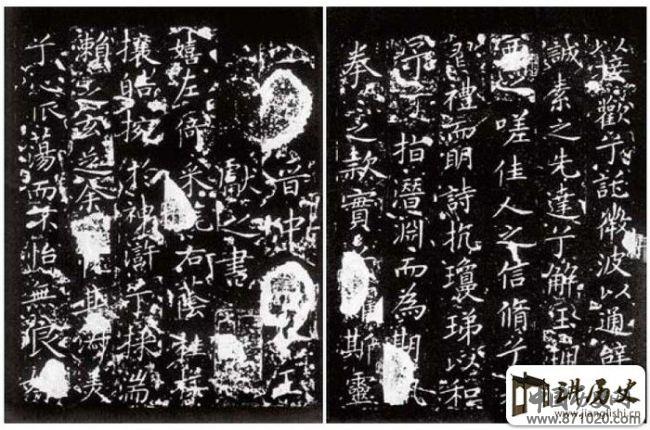 晉中 王
獻之書
嬉左倚采旄右蔭桂旗
攘皓捥於神滸兮採湍
瀨之玄芝余情其淑美
兮心爪蕩而不怡無良媒
以接歡兮託微波以通辭
誠素之先達兮解玉珮
要之嗟佳人之信脩兮
習禮而明詩抗瓊珶以和
予兮指潛淵而為期執
拳之款實 斯靈
讲历史
www.jianglishi.cn
www.871020.com